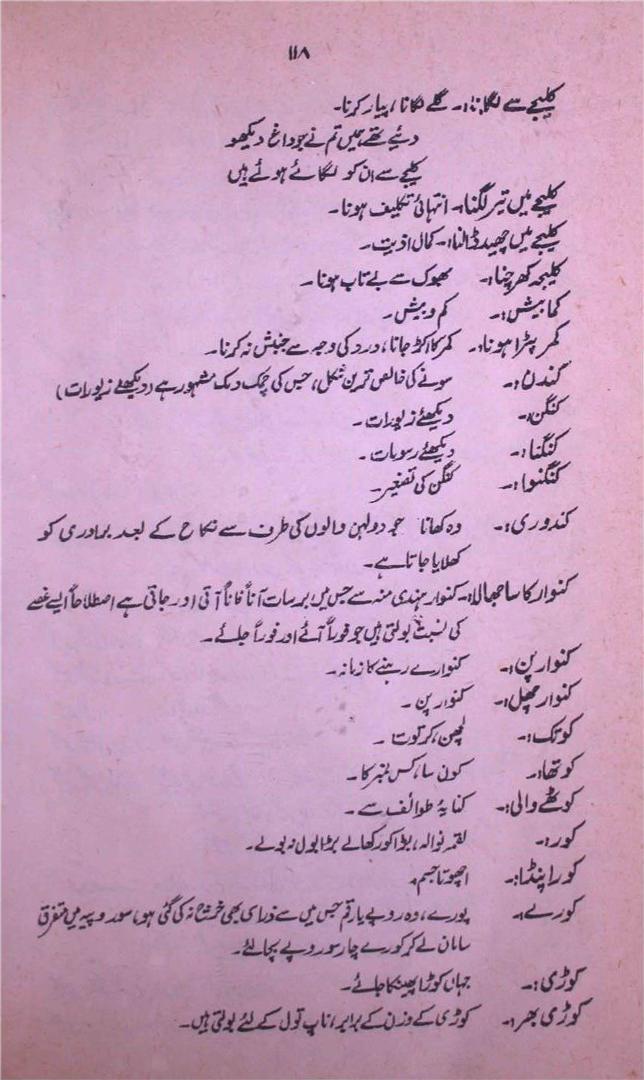 ۱۱۸
کلیجے سے لگانا:۔ گلے لگانا، پیار کرنا۔
دئیے تھے ہمیں تم نے جو داغ دیکھو
کلیجے سے ان کو لگائے ہوئے ہیں
کلیجے میں تیر لگنا:۔ انتہائی تکلیف ہونا۔
کلیجے میں چھید ڈالنا:۔ کمال اذیت۔
کلیجہ کھرچنا:۔ بھوک سے بے تاب ہونا۔
کما بیش:۔ کم و بیش۔
کمر پٹرا ہونا:۔ کمر کا اکڑ جانا، درد کی وجہ سے جنبش نہ کرنا۔
کندن:۔ سونے کی خالص ترین شکل، جس کی چمک دمک مشہور ہے (دیکھئے زیورات)
کنگن:۔ دیکھئے زیورات۔
کنگنا:۔ دیکھئے رسومات۔
کنگنوا:۔ کنگن کی تصغیر۔
کندوری:۔ وہ کھانا جو دولہن والوں کی طرف سے نکاح کے بعد برادری کو
کھلایا جاتا ہے۔
کنوار کا سا جھالا:۔ کنوار ہندی منہ سے جس میں برسات آناً فاناً آتی اور جاتی ہے اصطلاحاً ایسے غصے
کی نسبت بولتی ہیں جو فوراً آئے اور فوراً جائے۔
کنوار پن:۔ کنوارے رہنے کا زمانہ۔
کنوار چھل:۔ کنوار پن۔
کوتک:۔ لچھن، کرتوت۔
کوتھا:۔ کون سا، کس نمبر کا۔
کوٹھے والی:۔ کنایۃً طوائف سے۔
کور:۔ لقمہ نوالہ، بڑا کور کھالے بڑا بول نہ بولے۔
کورا پنڈا:۔ اچھوتا جسم۔
کورے:۔ پورے، وہ روپے یا رقم جس میں سے ذرا سی بھی خرچ نہ کی گئی ہو، سو روپیہ میں متفرق
سامان لے کر کورے چار سو روپے بچا لئے۔
کوڑی:۔ جہاں کوڑا پھینکا جائے۔
کوڑی بھر:۔ کوڑی کے وزن کے برابر، ناپ تول کے لئے بولتی ہیں۔